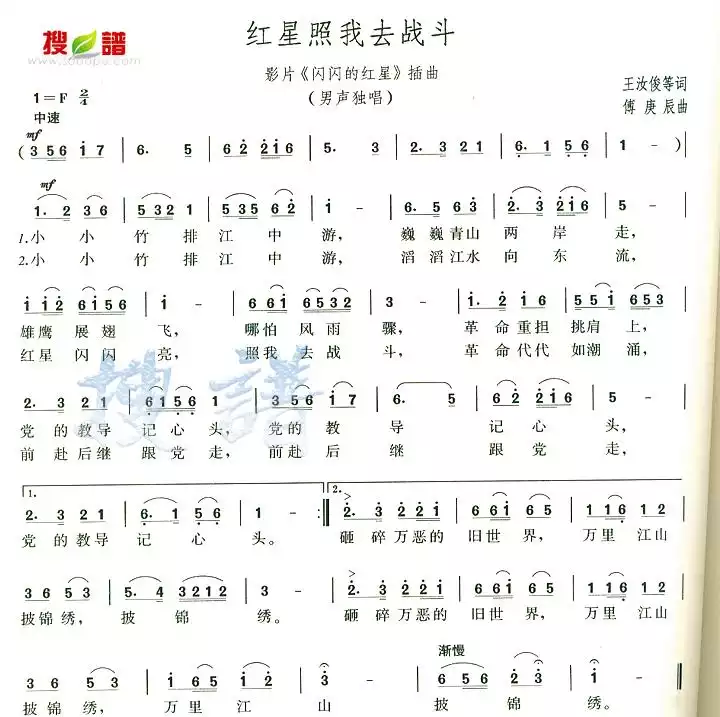 搜谱
www.sooopu.com
红星照我去战斗
影片《闪闪的红星》插曲
(男声独唱)
王汝俊等词
傅庚辰曲
1=F 2/4
中速
mf
(3 5 6 i 7 | 6. 5 | 6 2 2 1 6 | 5. 3 | 2. 3 2 1 | 6. 1 5 6 | 1 - )
mf
1. 2 3 6 | 5 3 2 1 | 5 3 5 6 2 | i - | 6. 5 6 3 | 2. 3 2 i 6 | 5 - |
1.小 小 竹 排 江 中 游, 巍巍青山 两 岸 走,
2.小 小 竹 排 江 中 游, 滔滔江水 向 东 流,
i i 2 6 i 5 6 | i - | 6 6 i 6 5 3 2 | 3 - | i. 2 i 6 | 5 5 i 6 5 3 |
雄鹰 展翅 飞, 哪怕 风雨 骤, 革命重担 挑肩上,
红星 闪闪 亮, 照我 去战 斗, 革命代代 如潮涌,
2. 3 2 1 | 6 1 5 6 1 | 3 5 6 i 7 | 6. 5 | 6 2 2 i 6 | 5 - |
党的教导 记心头, 党的教 导 记心 头,
前赴后继 跟党走, 前赴后 继 跟党 走,
1. 2.
2. 3 2 1 | 6. 1 5 6 | 1 - :‖ 2. 3 2 2 1 | 6 6 i 5 6 | 1 1 6 1 2 |
党的教导 记 心 头。 砸碎万恶的 旧世界, 万里江山
3 6 5 3 | 5. 4 3 2 1 2 | 3 - | 2. 3 2 2 1 | 6 6 i 5 6 | 1 1 6 1 2 |
披锦绣, 披 锦 绣。 砸碎万恶的 旧世界, 万里江山
渐慢
3 6 5 3 | i 6 5 i 2 | 3 - | 6 5 6 2 3 | i - ‖
披锦绣, 万里江 山 披锦 绣。